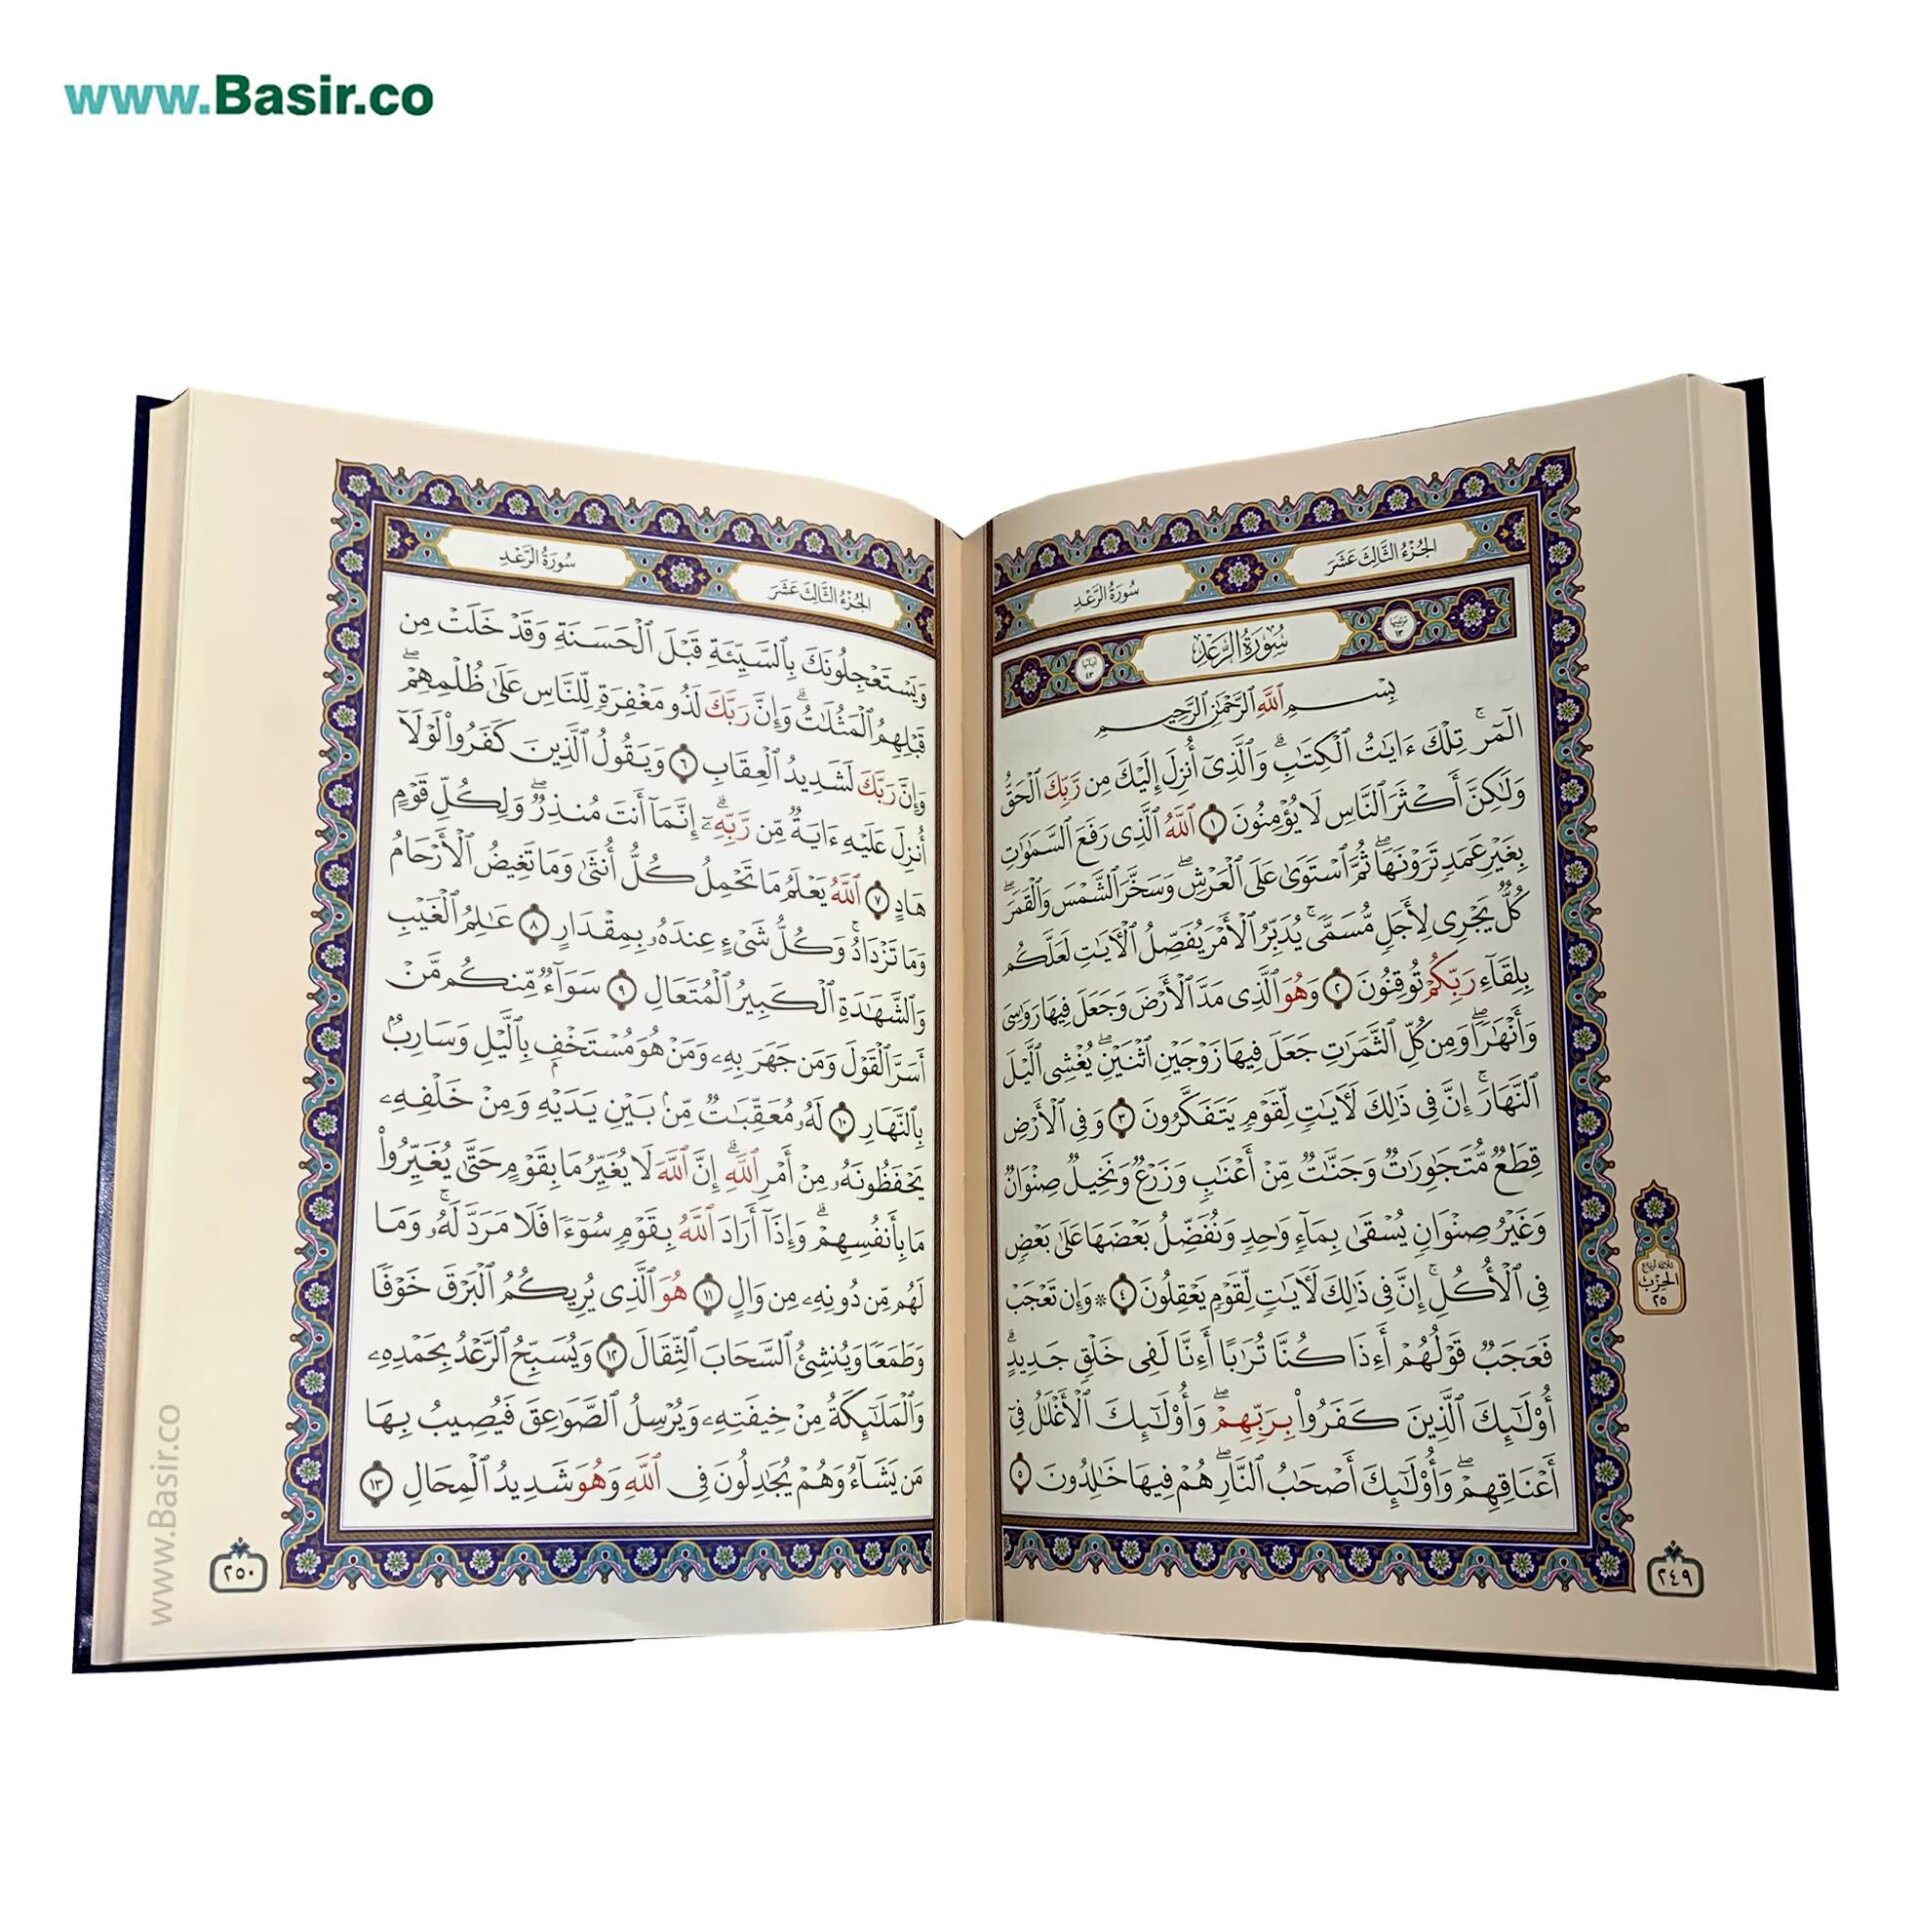 www.Basir.co
الجُزْءُ الثَّالِثَ عَشَرَ
سُورَةُ الرَّعْدِ
سُورَةُ الرَّعْدِ
١٣
بِسْمِ ٱللَّهِ ٱلرَّحْمَٰنِ ٱلرَّحِيمِ
الٓمٓرۚ تِلْكَ ءَايَٰتُ ٱلْكِتَٰبِۗ وَٱلَّذِىٓ أُنزِلَ إِلَيْكَ مِن رَّبِّكَ ٱلْحَقُّ
وَلَٰكِنَّ أَكْثَرَ ٱلنَّاسِ لَا يُؤْمِنُونَ ١ ٱللَّهُ ٱلَّذِى رَفَعَ ٱلسَّمَٰوَٰتِ
بِغَيْرِ عَمَدٍ تَرَوْنَهَاۖ ثُمَّ ٱسْتَوَىٰ عَلَى ٱلْعَرْشِۖ وَسَخَّرَ ٱلشَّمْسَ وَٱلْقَمَرَۖ
كُلٌّ يَجْرِى لِأَجَلٍ مُّسَمًّىۚ يُدَبِّرُ ٱلْأَمْرَ يُفَصِّلُ ٱلْءَايَٰتِ لَعَلَّكُم
بِلِقَآءِ رَبِّكُمْ تُوقِنُونَ ٢ وَهُوَ ٱلَّذِى مَدَّ ٱلْأَرْضَ وَجَعَلَ فِيهَا رَوَٰسِىَ
وَأَنْهَٰرًاۖ وَمِن كُلِّ ٱلثَّمَرَٰتِ جَعَلَ فِيهَا زَوْجَيْنِ ٱثْنَيْنِۖ يُغْشِى ٱلَّيْلَ
ٱلنَّهَارَۚ إِنَّ فِى ذَٰلِكَ لَءَايَٰتٍ لِّقَوْمٍ يَتَفَكَّرُونَ ٣ وَفِى ٱلْأَرْضِ
قِطَعٌ مُّتَجَٰوِرَٰتٌ وَجَنَّٰتٌ مِّنْ أَعْنَٰبٍ وَزَرْعٌ وَنَخِيلٌ صِنْوَانٌ
وَغَيْرُ صِنْوَانٍ يُسْقَىٰ بِمَآءٍ وَٰحِدٍ وَنُفَضِّلُ بَعْضَهَا عَلَىٰ بَعْضٍ
فِى ٱلْأُكُلِۚ إِنَّ فِى ذَٰلِكَ لَءَايَٰتٍ لِّقَوْمٍ يَعْقِلُونَ ٤ * وَإِن تَعْجَبْ
فَعَجَبٌ قَوْلُهُمْ أَءِذَا كُنَّا تُرَٰبًا أَءِنَّا لَفِى خَلْقٍ جَدِيدٍۗ
أُو۟لَٰٓئِكَ ٱلَّذِينَ كَفَرُوا۟ بِرَبِّهِمْۖ وَأُو۟لَٰٓئِكَ ٱلْأَغْلَٰلُ فِىٓ
أَعْنَاقِهِمْۖ وَأُو۟لَٰٓئِكَ أَصْحَٰبُ ٱلنَّارِۖ هُمْ فِيهَا خَٰلِدُونَ ٥
ثلاثة أرباع
الحِزْب
٢٥
٢٤٩
الجُزْءُ الثَّالِثَ عَشَرَ
سُورَةُ الرَّعْدِ
وَيَسْتَعْجِلُونَكَ بِٱلسَّيِّئَةِ قَبْلَ ٱلْحَسَنَةِ وَقَدْ خَلَتْ مِن
قَبْلِهِمُ ٱلْمَثُلَٰتُۗ وَإِنَّ رَبَّكَ لَذُو مَغْفِرَةٍ لِّلنَّاسِ عَلَىٰ ظُلْمِهِمْۖ
وَإِنَّ رَبَّكَ لَشَدِيدُ ٱلْعِقَابِ ٦ وَيَقُولُ ٱلَّذِينَ كَفَرُوا۟ لَوْلَآ
أُنزِلَ عَلَيْهِ ءَايَةٌ مِّن رَّبِّهِۦٓۗ إِنَّمَآ أَنتَ مُنذِرٌۖ وَلِكُلِّ قَوْمٍ
هَادٍ ٧ ٱللَّهُ يَعْلَمُ مَا تَحْمِلُ كُلُّ أُنثَىٰ وَمَا تَغِيضُ ٱلْأَرْحَامُ
وَمَا تَزْدَادُۚ وَكُلُّ شَىْءٍ عِندَهُۥ بِمِقْدَارٍ ٨ عَٰلِمُ ٱلْغَيْبِ
وَٱلشَّهَٰدَةِ ٱلْكَبِيرُ ٱلْمُتَعَالِ ٩ سَوَآءٌ مِّنكُم مَّنْ
أَسَرَّ ٱلْقَوْلَ وَمَن جَهَرَ بِهِۦ وَمَنْ هُوَ مُسْتَخْفٍۭ بِٱلَّيْلِ وَسَارِبٌۢ
بِٱلنَّهَارِ ١٠ لَهُۥ مُعَقِّبَٰتٌ مِّنۢ بَيْنِ يَدَيْهِ وَمِنْ خَلْفِهِۦ
يَحْفَظُونَهُۥ مِنْ أَمْرِ ٱللَّهِۗ إِنَّ ٱللَّهَ لَا يُغَيِّرُ مَا بِقَوْمٍ حَتَّىٰ يُغَيِّرُوا۟
مَا بِأَنفُسِهِمْۗ وَإِذَآ أَرَادَ ٱللَّهُ بِقَوْمٍ سُوٓءًا فَلَا مَرَدَّ لَهُۥۚ وَمَا
لَهُم مِّن دُونِهِۦ مِن وَالٍ ١١ هُوَ ٱلَّذِى يُرِيكُمُ ٱلْبَرْقَ خَوْفًا
وَطَمَعًا وَيُنشِئُ ٱلسَّحَابَ ٱلثِّقَالَ ١٢ وَيُسَبِّحُ ٱلرَّعْدُ بِحَمْدِهِۦ
وَٱلْمَلَٰٓئِكَةُ مِنْ خِيفَتِهِۦ وَيُرْسِلُ ٱلصَّوَٰعِقَ فَيُصِيبُ بِهَا
مَن يَشَآءُ وَهُمْ يُجَٰدِلُونَ فِى ٱللَّهِ وَهُوَ شَدِيدُ ٱلْمِحَالِ ١٣
٢٥٠
www.Basir.co